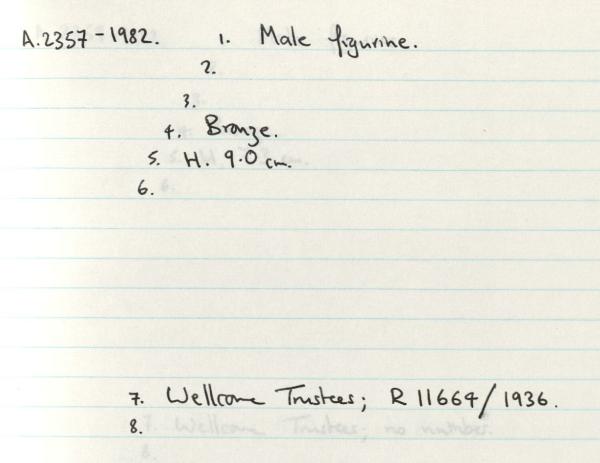 A.2357-1982. 1. Male figurine.
2.
3.
4. Bronze.
5. H. 9.0 cm.
6.
7. Wellcome Trustees; R 11664/1936.
8.